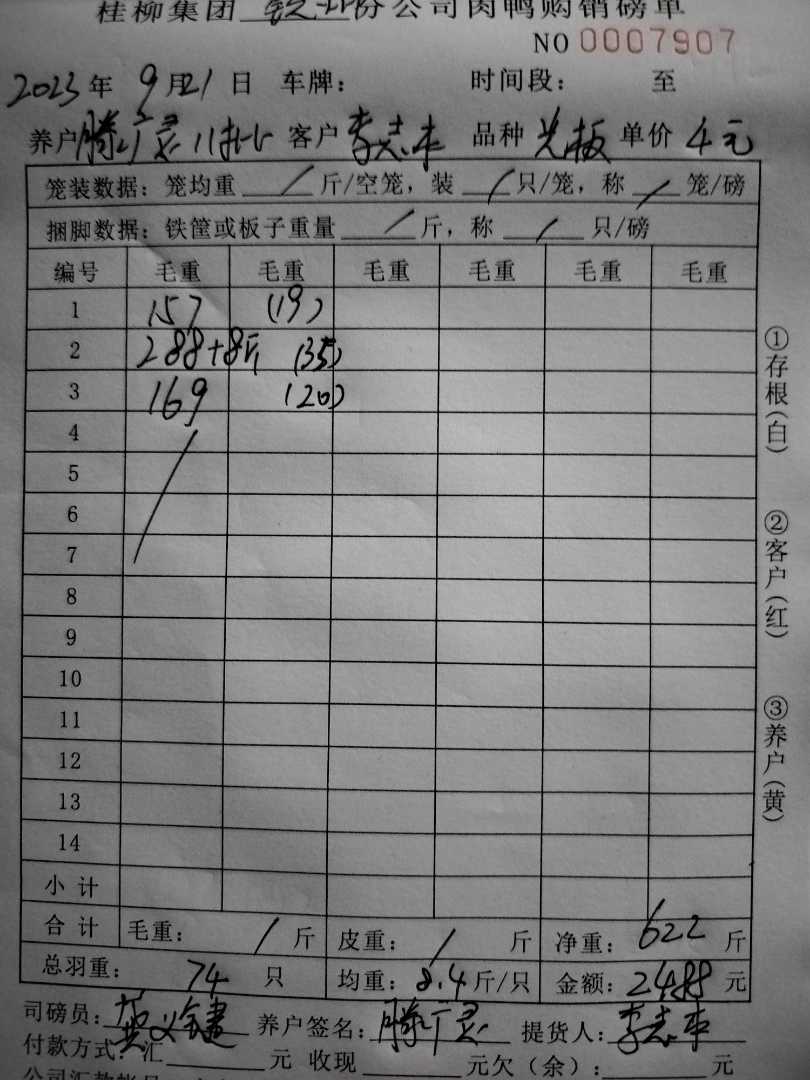 桂柳集团 份公司肉鸭购销磅单
NO 0007907
2023年9月21日 车牌： 时间段： 至
养户 滕广灵 客户 李志本 品种 光板 单价 4元
笼装数据：笼均重 / 斤/空笼，装 / 只/笼，称 / 笼/磅
捆脚数据：铁筐或板子重量 / 斤，称 / 只/磅
编号 毛重 毛重 毛重 毛重 毛重 毛重
1 157 (19)
2 288+8斤 (35)
3 169 (20)
4
5
6
7
8
9
10
11
12
13
14
小计
合计 毛重： / 斤 皮重： / 斤 净重：622 斤
总羽重：74 只 均重：8.4斤/只 金额：2488元
司磅员： 养户签名：滕广灵 提货人：李志本
付款方式：汇 元 收现 元欠（余）： 元
①存根(白)
②客户(红)
③养户(黄)